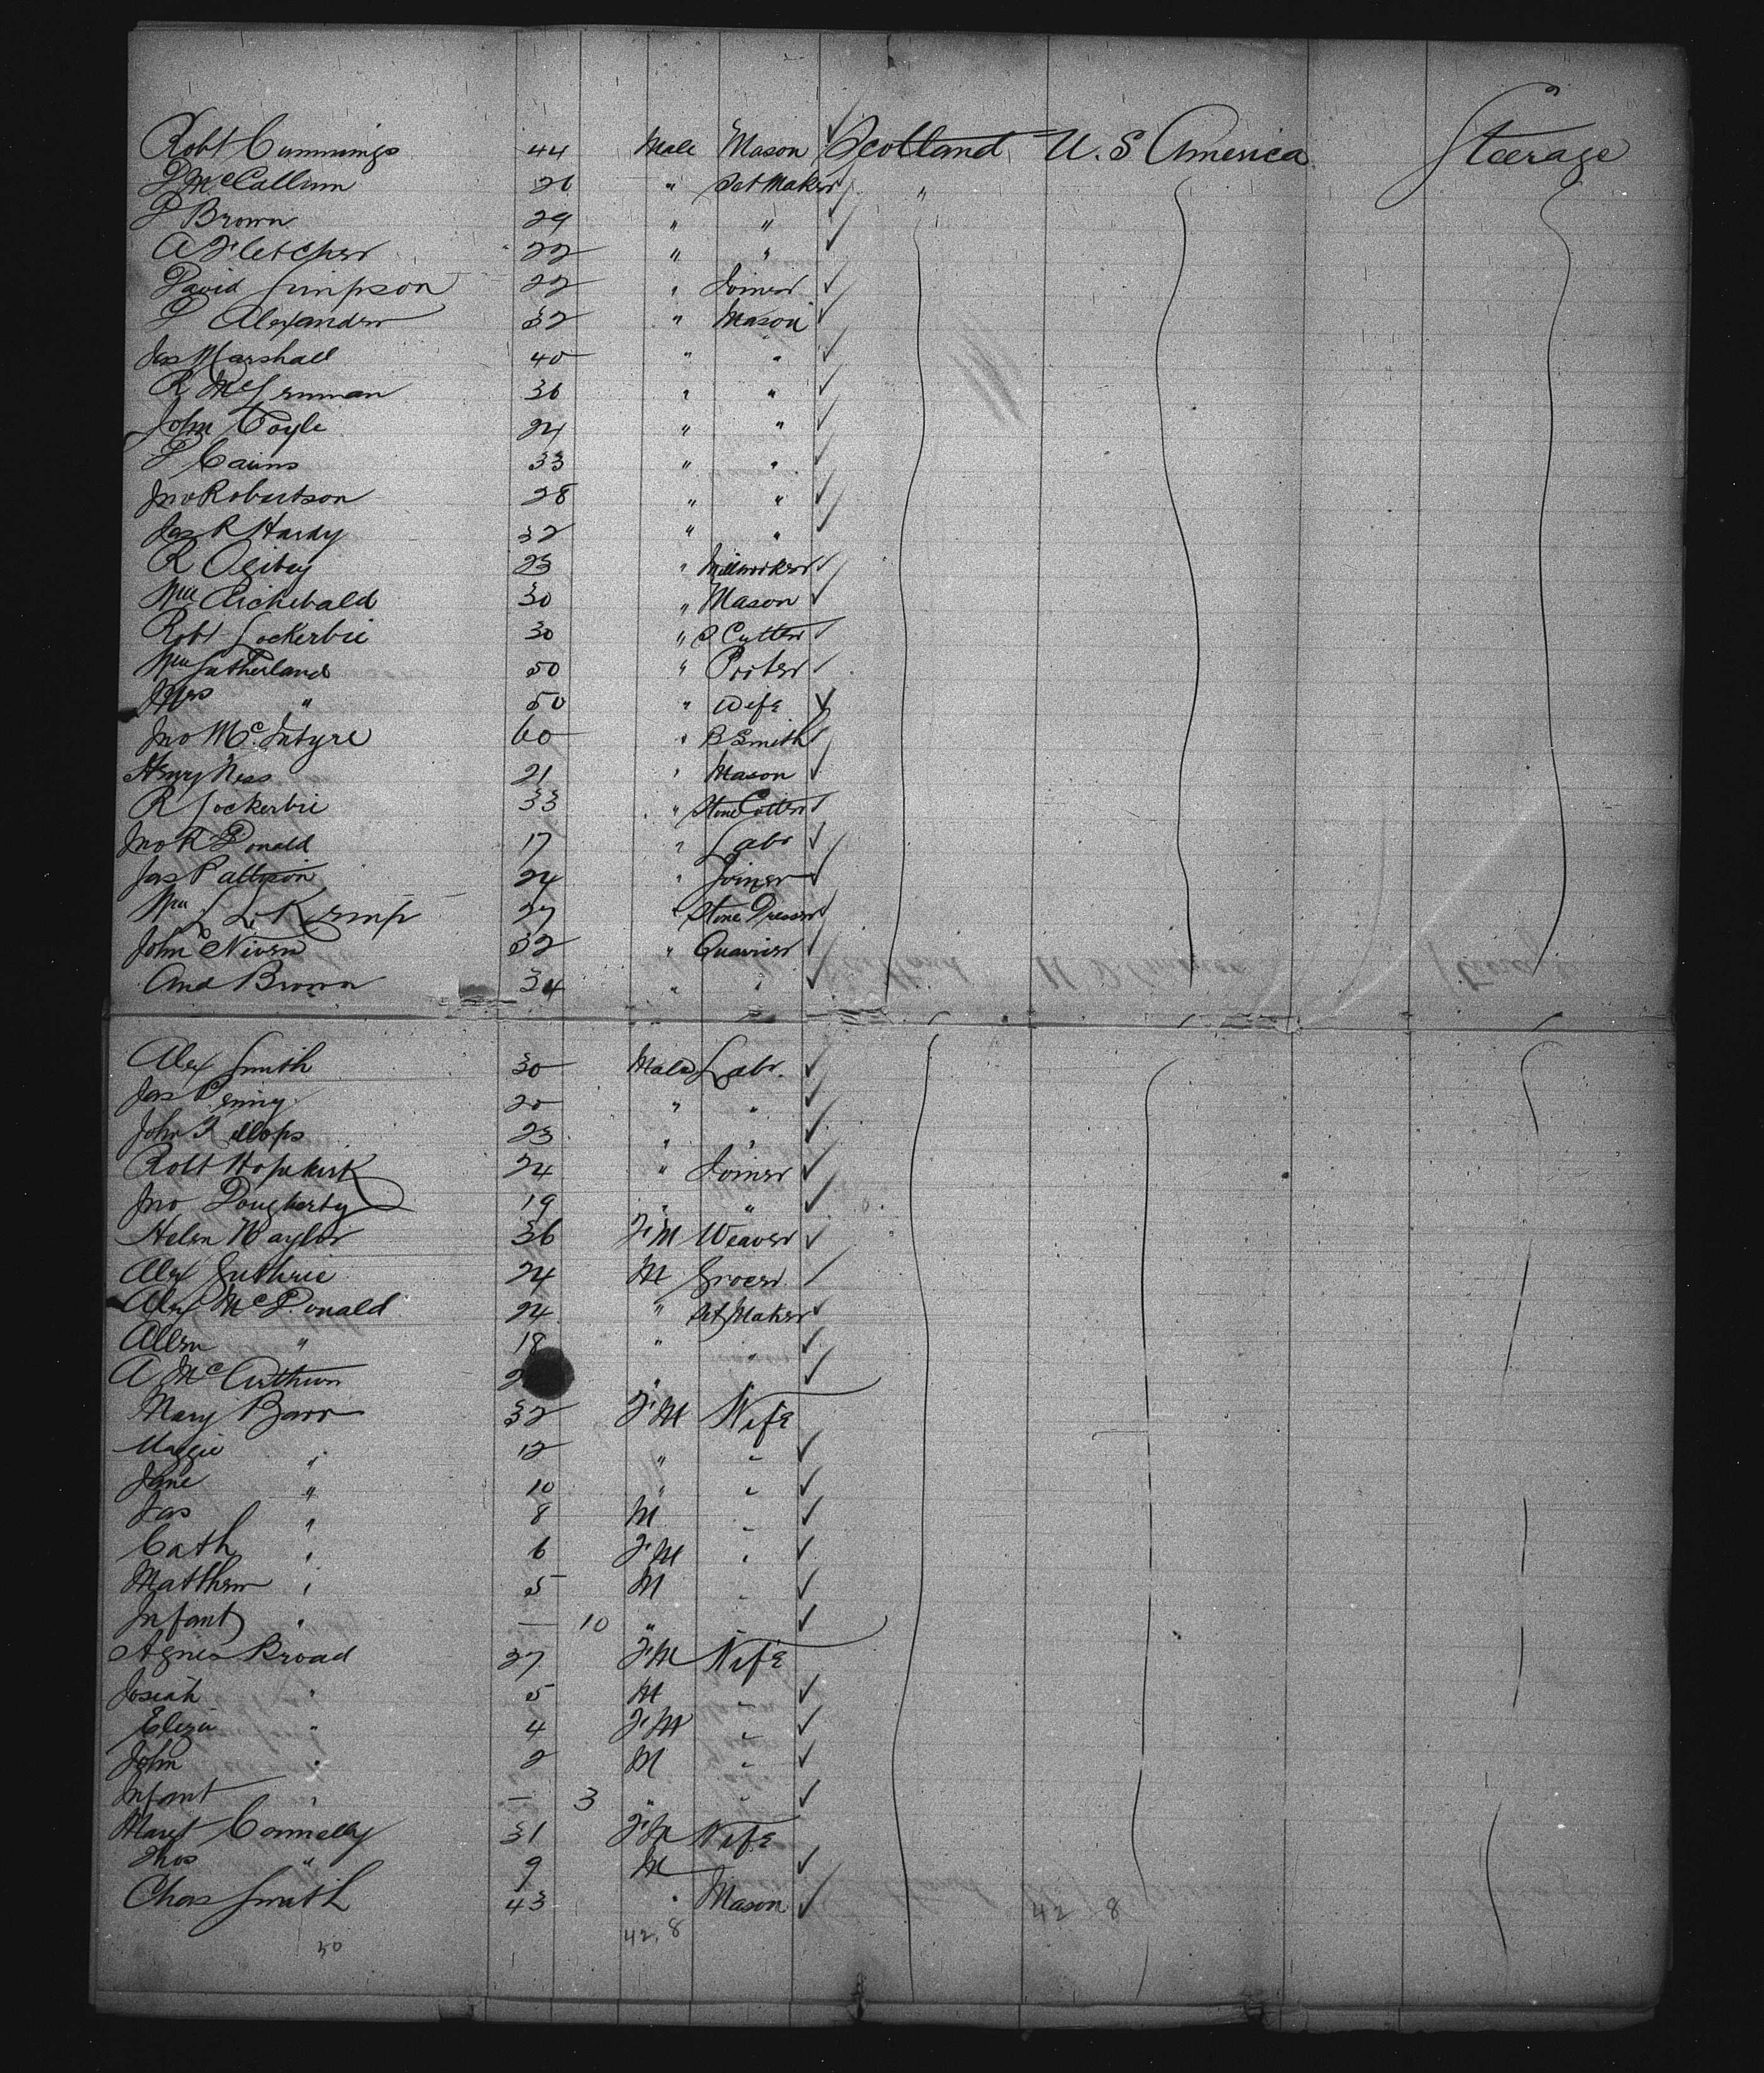 Robt Cummings 44 Male Mason Scotland U. S America Steerage
P McCallum 26 " Set Maker "
P Brown 29 " "
A Fletcher 22 " "
David Simpson 22 " Joiner
P Alexander 32 " Mason
Jas Marshall 40 " "
R 36 " "
John Coyle 24 " "
P Cairns 33 " "
Jno Robertson 28 " "
Jas R Hardy 32 " "
R Ogilvy 23 " Millworker
Wm Archibald 30 " Mason
Robt Lockerbie 30 " S Cutter
Wm Sutherland 50 " Porter
Mrs " 50 " Wife
Jno McIntyre 60 " B Smith
Henry Ness 21 " Mason
R Lockerbie 33 " Stone Cutter
Jno R Donald 17 " Labr
Jas Pattison 24 " Joiner
Wm L Kemp 27 " Stone Dresser
John Niven 32 " Quarrier
And Brown 34 " "
Alex Smith 30 Male Labr.
Jas Penny 20 " "
John Killops 23 " "
Robt Hopekirk 24 " Joiner
Jno Dougherty 19 " "
Helen Naylor 36 F'M Weaver
Alex Guthrie 24 M Grocer
Alex McDonald 24 " Set Maker
Allen " 18 " "
A McArthur 2 " "
Mary Barr 32 F'M Wife
Maggie " 12 " "
Jane " 10 " "
Jas " 8 M "
Cath " 6 F'M "
Matthew " 5 M "
Infant " — 10 "
Agnes Broad 27 F'M Wife
Josiah " 5 M "
Eliza " 4 F'M "
John " 2 M "
Infant " — 3 " "
Maret Connelly 31 F'M Wife
Thos " 9 M
Chas Smith 43 " Mason
42 8
50 42, 8